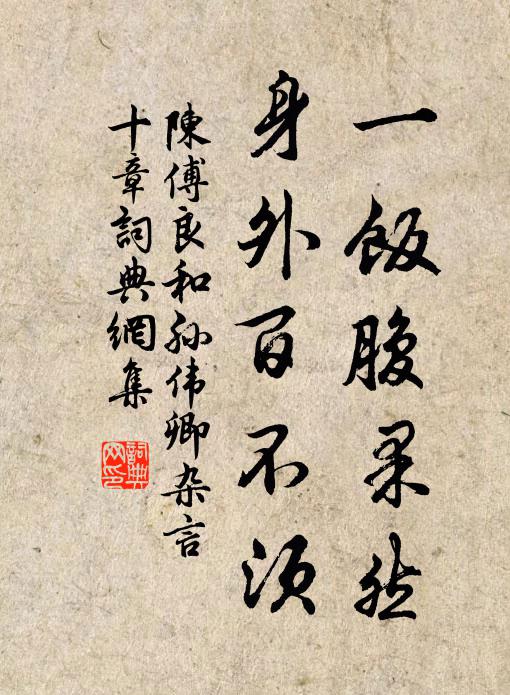 一飯腹果然
身外百不須
陳傅良和孙偉卿杂言
十章詞典網集
詞典
网印